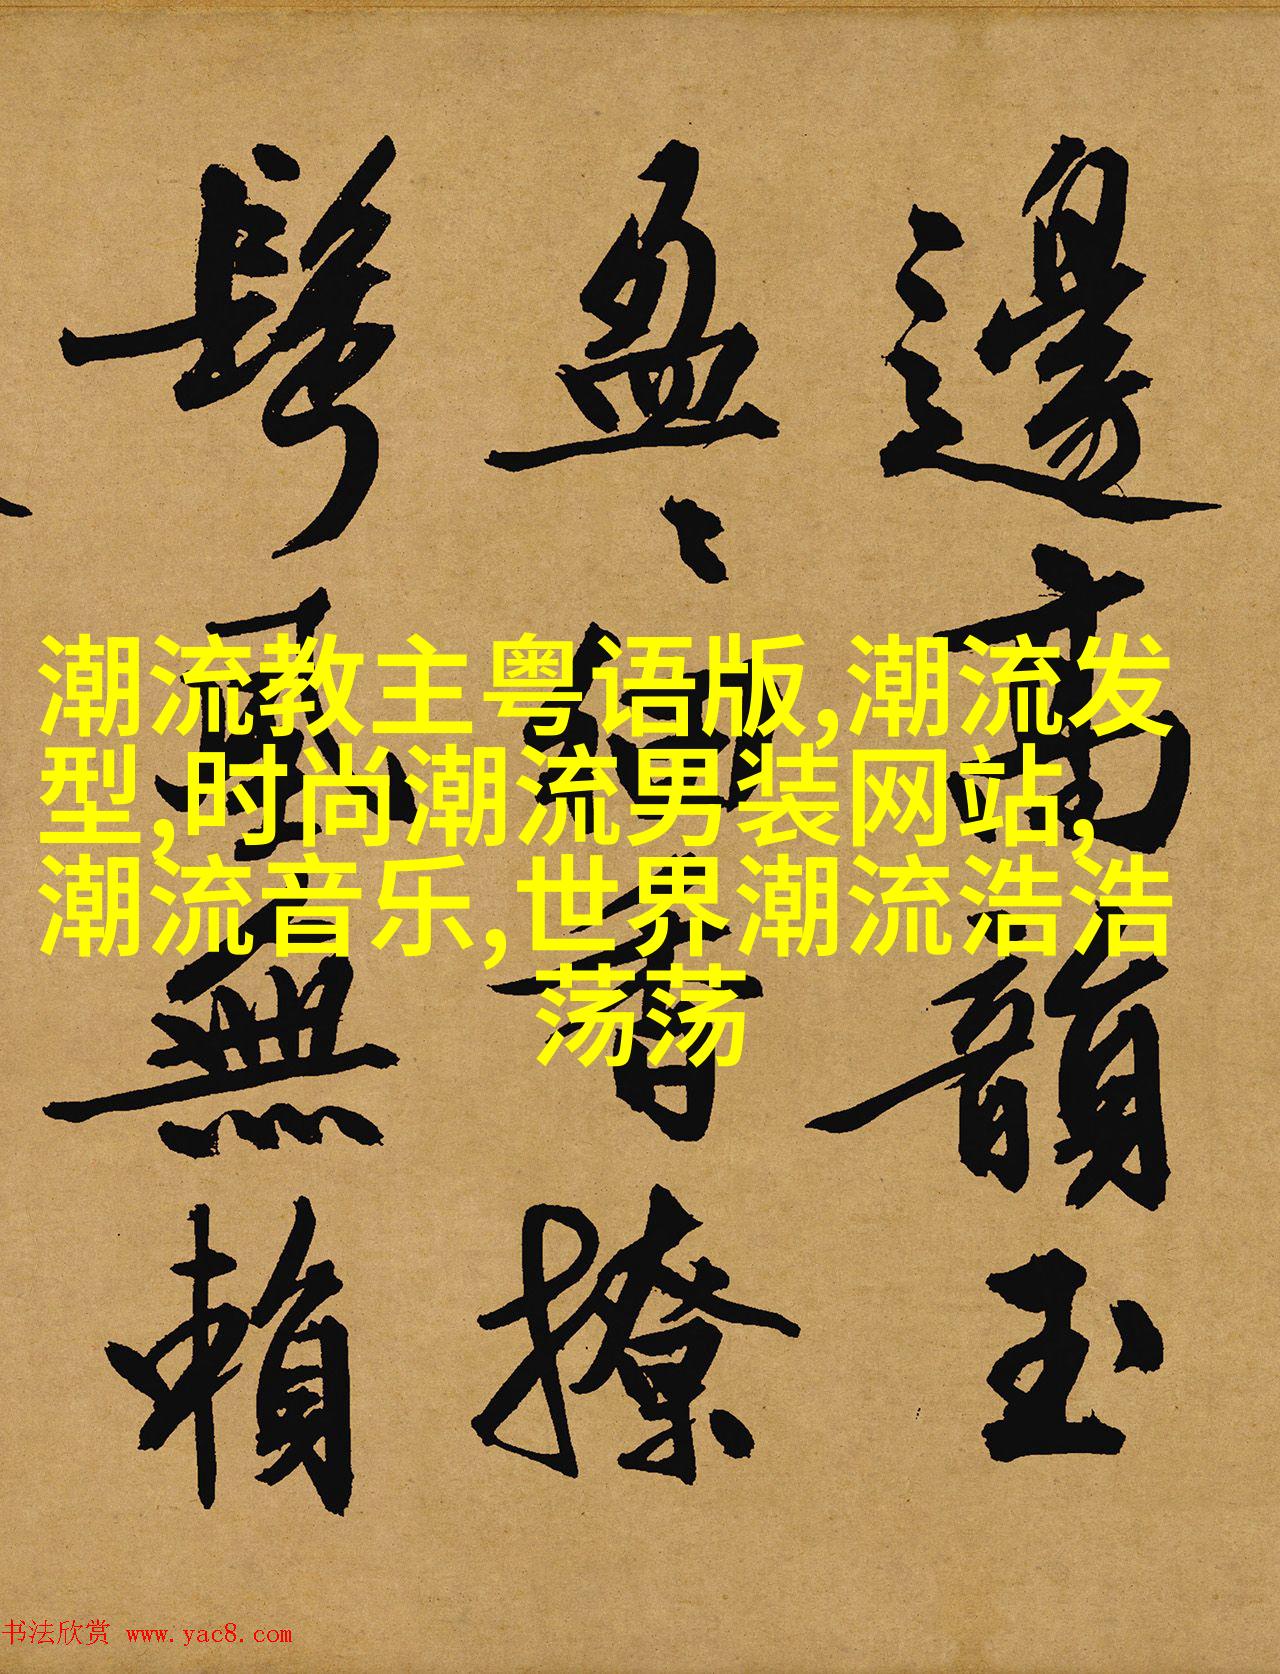 邊高韻玉
盈〻細香撩
鬢風無賴
潮流教主粤语版,潮流发
型,时尚潮流男装网站,
潮流音乐,世界潮流浩浩
荡荡
书法欣赏 www.yac8.com